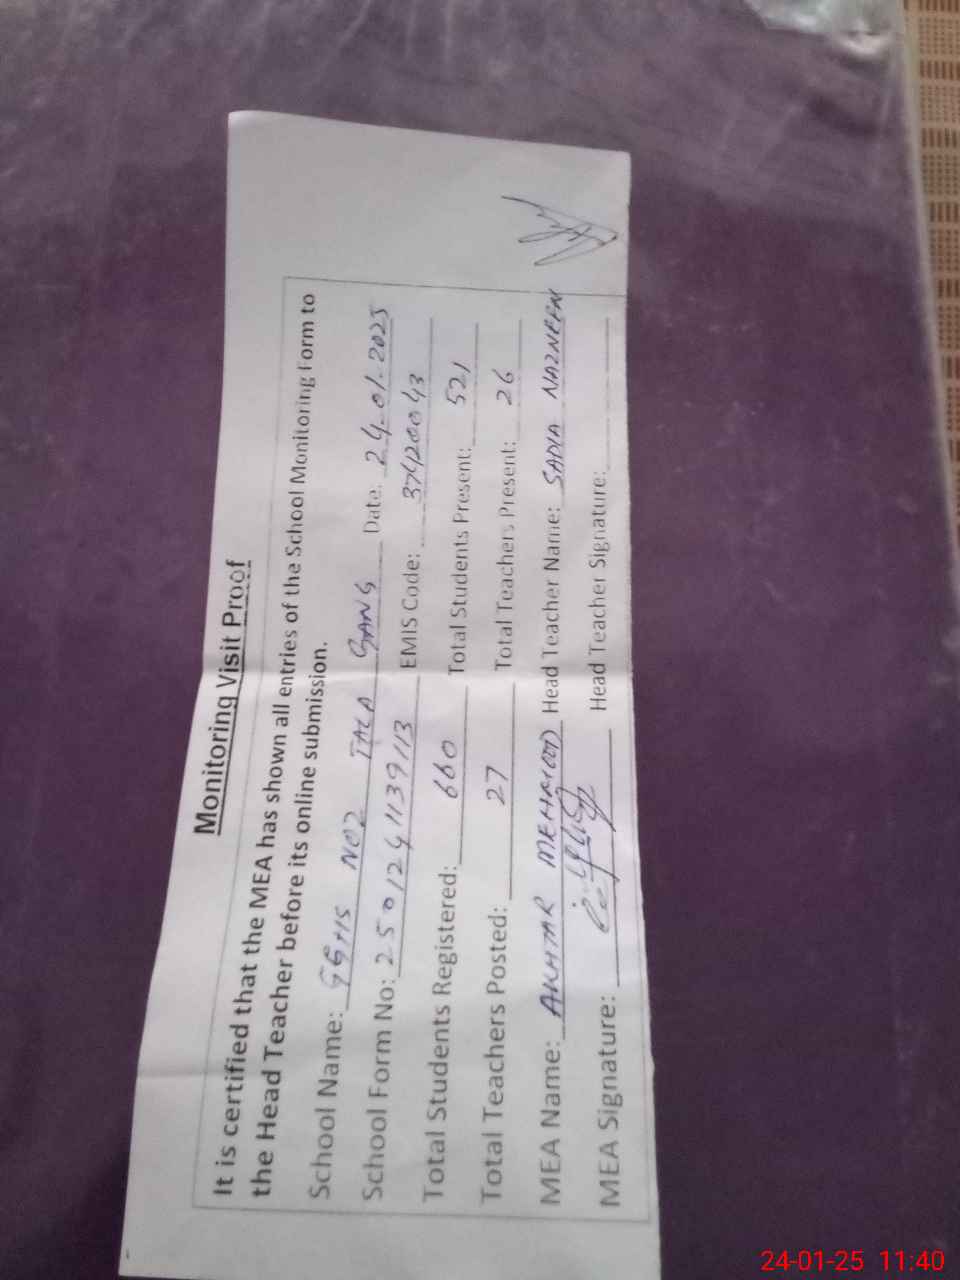 Monitoring Visit Proof
It is certified that the MEA has shown all entries of the School Monitoring Form to
the Head Teacher before its online submission.
School Name: GGHS NO2 TALA GANG Date: 24-01-2025
School Form No: 2501241139113 EMIS Code: 37420043
Total Students Registered: 660 Total Students Present: 521
Total Teachers Posted: 27 Total Teachers Present: 26
MEA Name: AKHTAR MEHMOOD Head Teacher Name: SADIA NAZNEEN
MEA Signature: Head Teacher Signature:
24-01-25 11:40